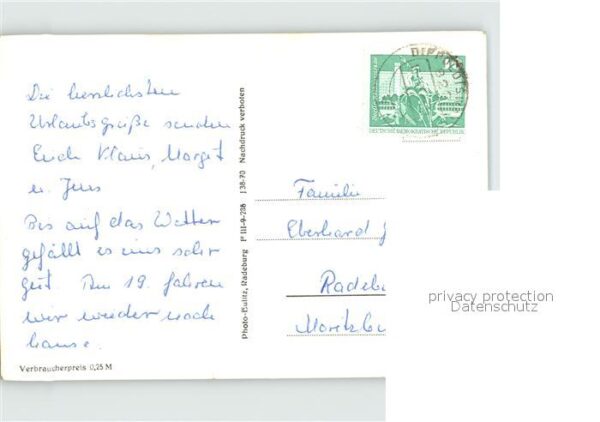 Die herzlichsten
Urlaubsgrüße senden
Euch Klaus, Margit
u. Jens
Bis auf das Wetter
gefällt es uns sehr
gut. Am 19. fahren
wir wieder nach
hause.
Verbraucherpreis 0,25 M
Photo-Bulitz, Radeburg P III-9-288 J 38-70 Nachdruck verboten
DEUTSCHE DEMOKRATISCHE REPUBLIK
Familie
Eberhard
Radeb
Moritzbu
privacy protection
Datenschutz